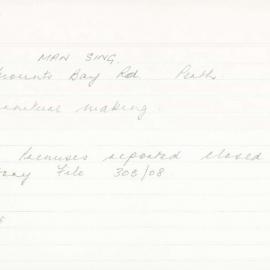 MAN SING.
Mounts Bay Rd. Perth
making.
Premises reported closed
File 308/08.